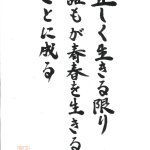 正しく生きる限り
誰もが青春を生きる
ことに成る